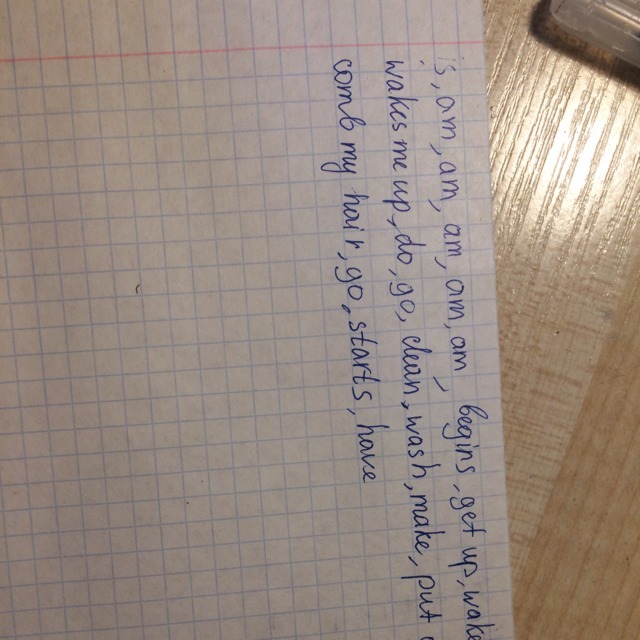 is, am, am, am, am, am, begins, get up, wake
wakes me up, do, go, clean, wash, make, put
comb my hair, go, starts, have